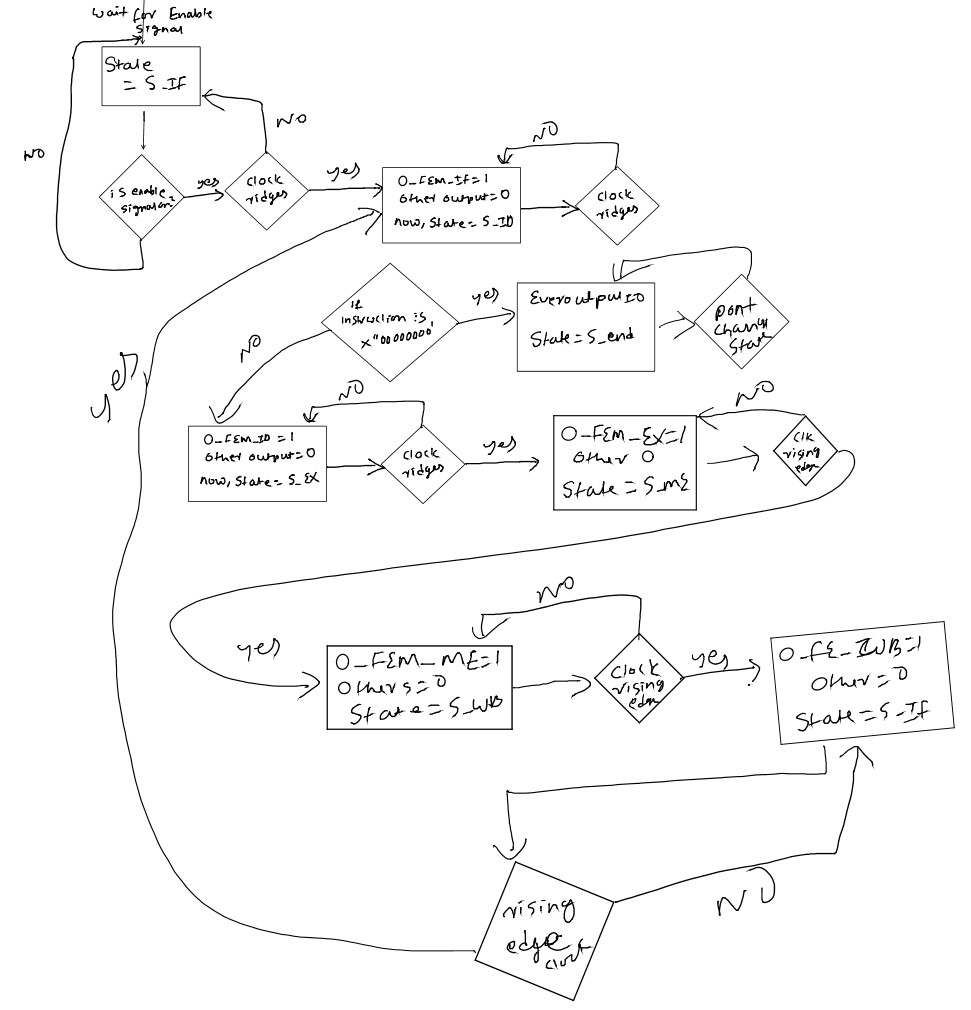 Wait for Enable
Signal
State
= S_IF
NO
is enable
signal on?
yes
Clock
ridges
NO
yes
O_FEM_IF=1
Other output=0
now, State= S_ID
NO
Clock
ridges
If
instruction is
x"00000000'
yes
Every output=0
State=S_end
Dont
Change
State
NO
yes
O_FEM_ID=1
Other output=0
now, State=S_EX
NO
Clock
ridges
yes
O_FEM_EX=1
Other 0
State=S_ME
NO
Clk
rising
edge
yes
O_FEM_ME=1
Others=0
State=S_WB
NO
Clock
rising
edge
yes
Other=0
State=S_IF
NO
rising
edge